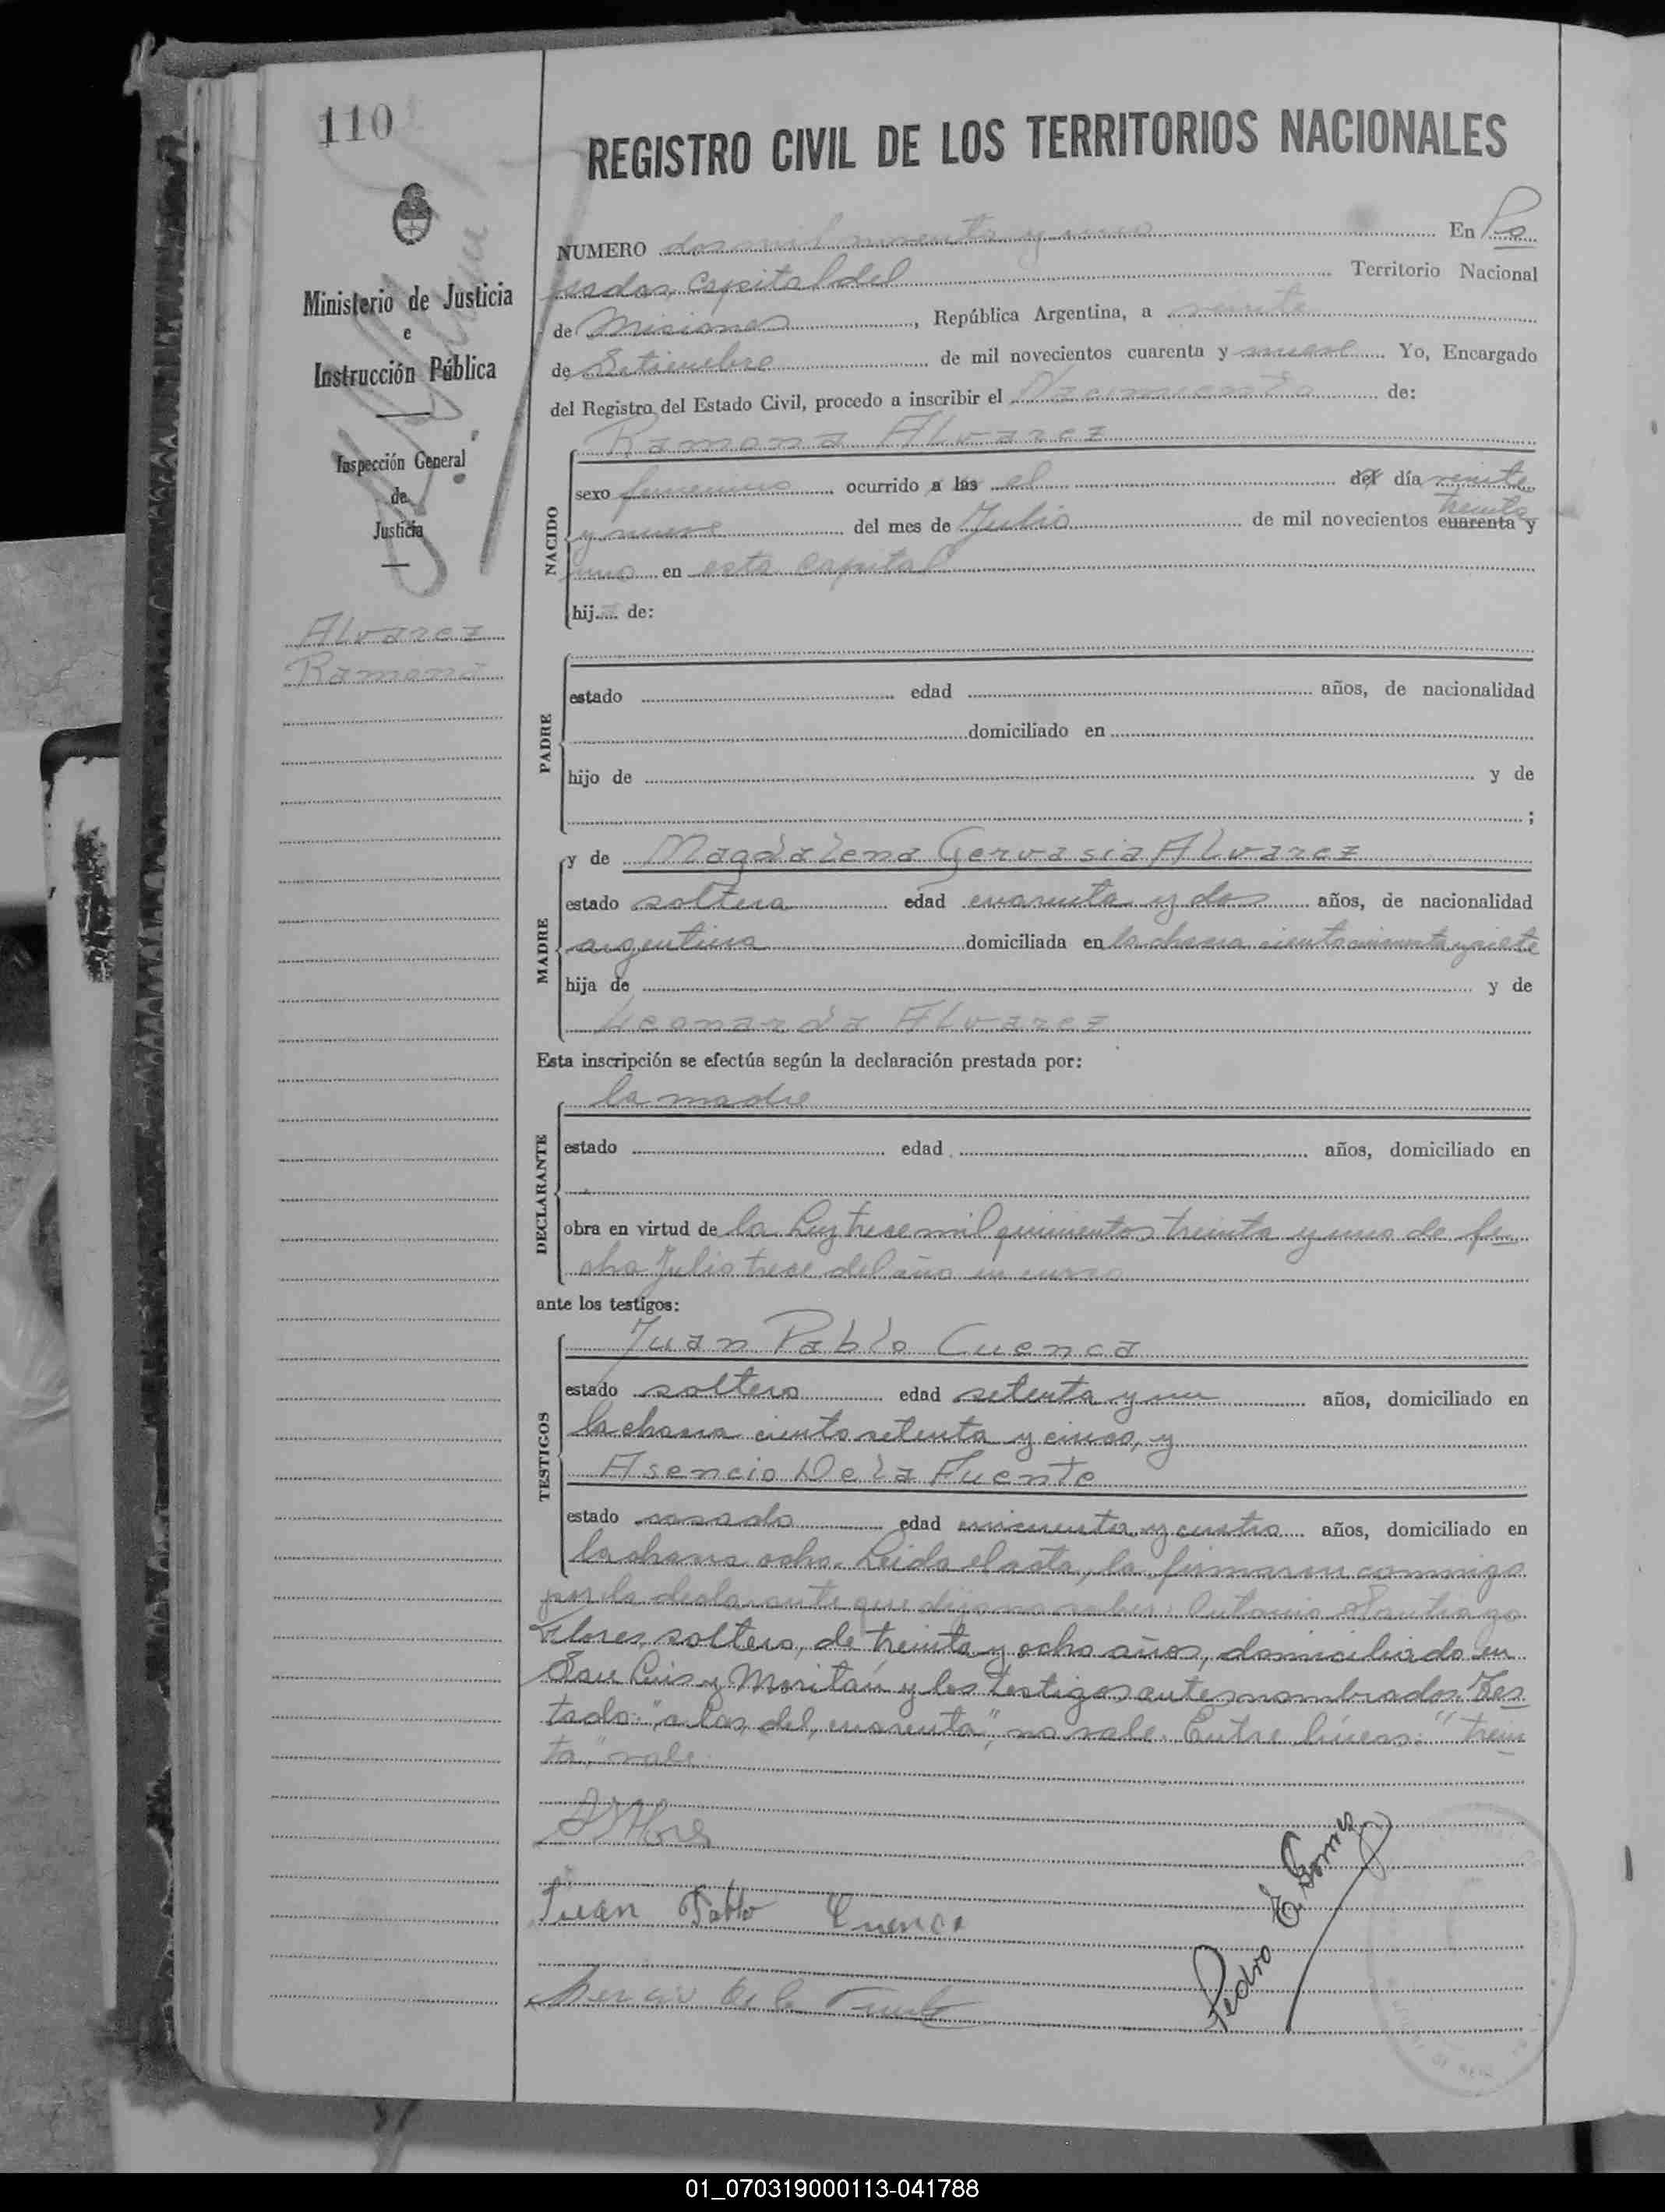 110
REGISTRO CIVIL DE LOS TERRITORIOS NACIONALES
Ministerio de Justicia
e
Instrucción Pública
Inspección General
de
Justicia
Alvarez
Ramona
NUMERO dos mil noventa y uno En Po
sadas, Capital del Territorio Nacional
de Misiones, República Argentina, a veinte
de Setiembre de mil novecientos cuarenta y nueve Yo, Encargado
del Registro del Estado Civil, procedo a inscribir el Nacimiento de:
Ramona Alvarez
NACIDO
sexo femenino ocurrido a las el del día veinte
y nueve del mes de Julio de mil novecientos cuarenta treinta y
uno en esta capital
hij de:
PADRE
estado edad años, de nacionalidad
domiciliado en
hijo de y de
;
MADRE
y de Magdalena Gervasia Alvarez
estado soltera edad cuarenta y dos años, de nacionalidad
argentina domiciliada en la chacra ciento cincuenta y siete
hija de y de
Leonarda Alvarez
Esta inscripción se efectúa según la declaración prestada por:
DECLARANTE
la madre
estado edad años, domiciliado en
obra en virtud de la Ley trece mil quinientos treinta y uno de fe
cha Julio trece del año en curso
ante los testigos:
TESTIGOS
Juan Pablo Cuenca
estado soltero edad setenta y un años, domiciliado en
la chacra ciento setenta y cinco, y
Asencio De la Fuente
estado casado edad cincuenta y cuatro años, domiciliado en
la chacra ocho. Leida el acta, la firmaron conmigo
por la declarante que dijo no saber: Antonio Santiago
Flores, soltero, de treinta y ocho años, domiciliado en
San Luis y Moritán y los testigos antes nombrados. Tes
tado: "a las, del, cuarenta", no vale. Entre líneas: "trein
ta" vale.
Juan Pablo Cuenca
De la Fuente
Pedro E. Gomez
01_070319000113-041788